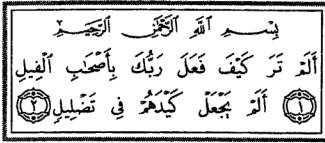 بِسْمِ اللَّهِ الرَّحْمَٰنِ الرَّحِيمِ
أَلَمْ تَرَ كَيْفَ فَعَلَ رَبُّكَ بِأَصْحَٰبِ الْفِيلِ
﴿١﴾ أَلَمْ يَجْعَلْ كَيْدَهُمْ فِى تَضْلِيلٍ ﴿٢﴾